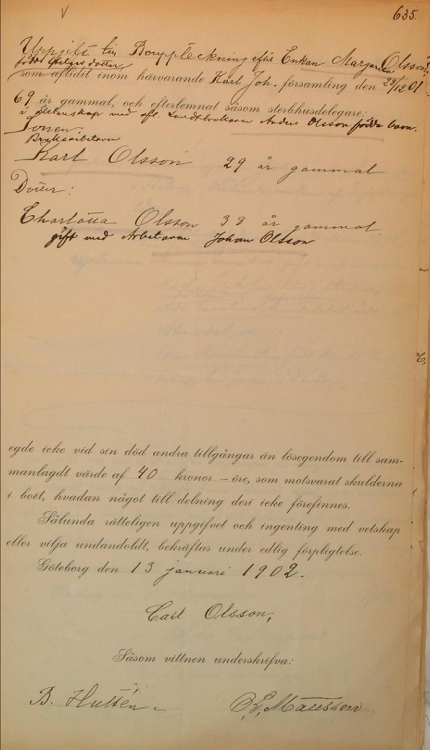 635.
Uppgift till Bouppteckning efter Enkan Margareta Olsson,
född
som aflidit inom härvarande Karl Joh. församling den 24/12 01
69 år gammal, och efterlemnat såsom sterbhusdelegare:
i äktenskap med afl. Landtbrukaren Anders Olsson födda barn.
Sonen:
Bryggeriarbetaren
Karl Olsson 29 år gammal
Dotter:
Charlotta Olsson 38 år gammal
gift med Arbetaren Johan Olsson
egde icke vid sin död andra tillgångar än lösegendom till sam-
manlagdt värde af 40 kronor — öre, som motsvarat skulderna
i boet, hvadan något till delning deri icke förefinnes.
Sålunda rätteligen uppgifvet och ingenting med vetskap
eller vilja undandoldt, bekräftas under edlig förpligtelse.
Göteborg den 13 januari 1902.
Carl Olsson,
Såsom vittnen underskrifva:
B. Hultén. Mattsson